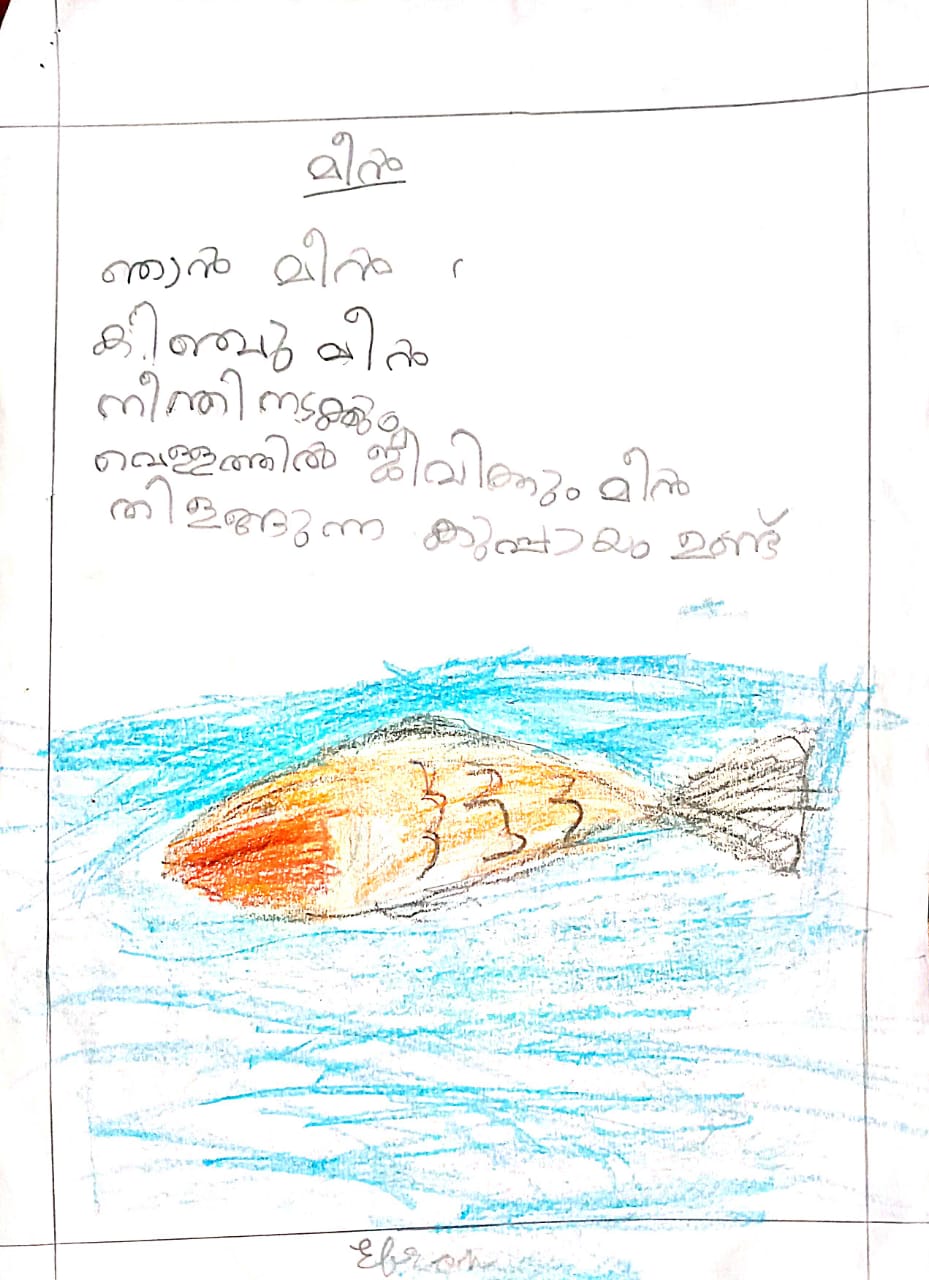 മീൻ
ഞാൻ മീൻ
കിഞ്ചു മീൻ
നീന്തി നടക്കും
വെള്ളത്തിൽ ജീവിക്കും മീൻ
തിളങ്ങുന്ന കുപ്പായം ഉണ്ട്